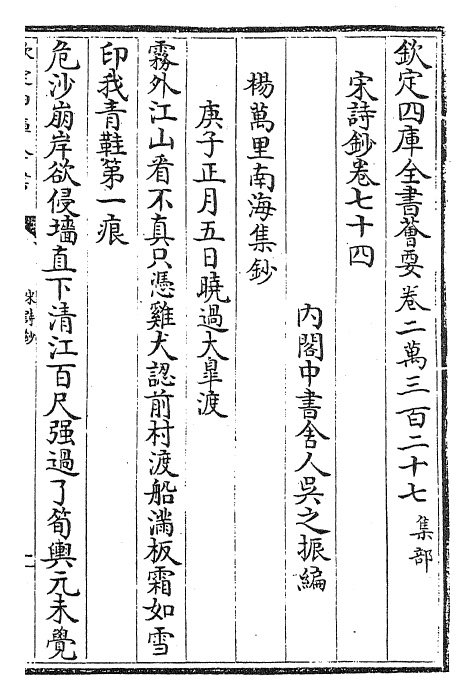 欽定四庫全書薈要卷二萬三百二十七 集部
宋詩鈔卷七十四
內閣中書舍人吳之振編
楊萬里南海集鈔
庚子正月五日曉過大皐渡
霧外江山看不真只憑雞犬認前村渡船滿板霜如雪
印我青鞋第一痕
危沙崩岸欲侵墻直下清江百尺强過了筍輿元未覺
宋詩鈔